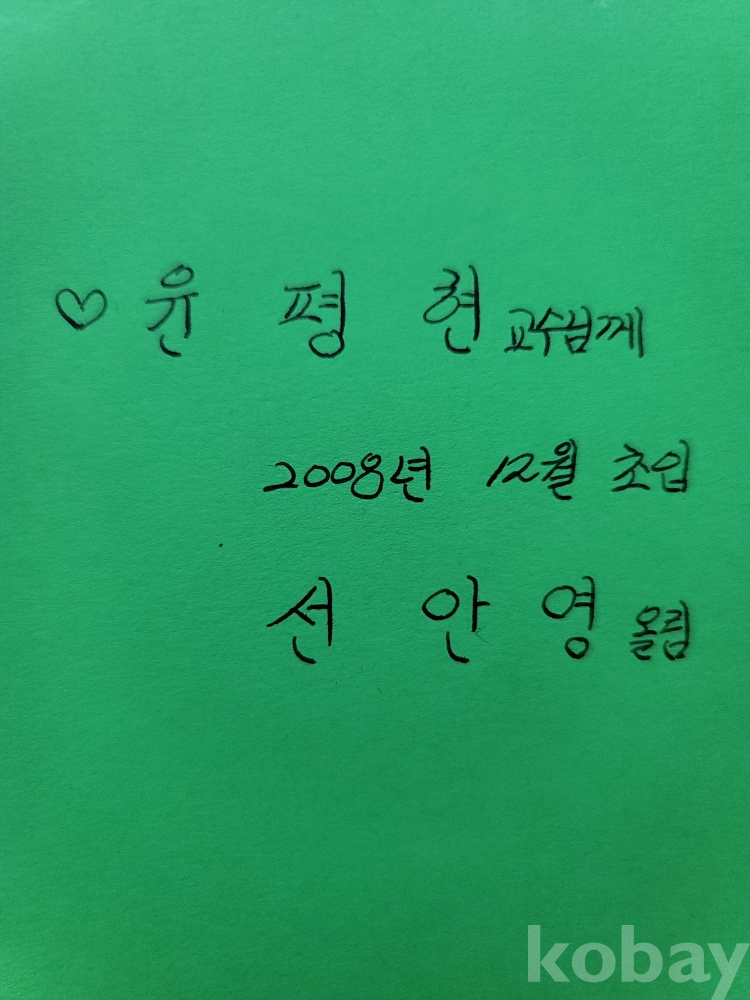 ♡ 윤 평 현 교수님께
2008년 12월 초입
선 안 영 올림
kobay